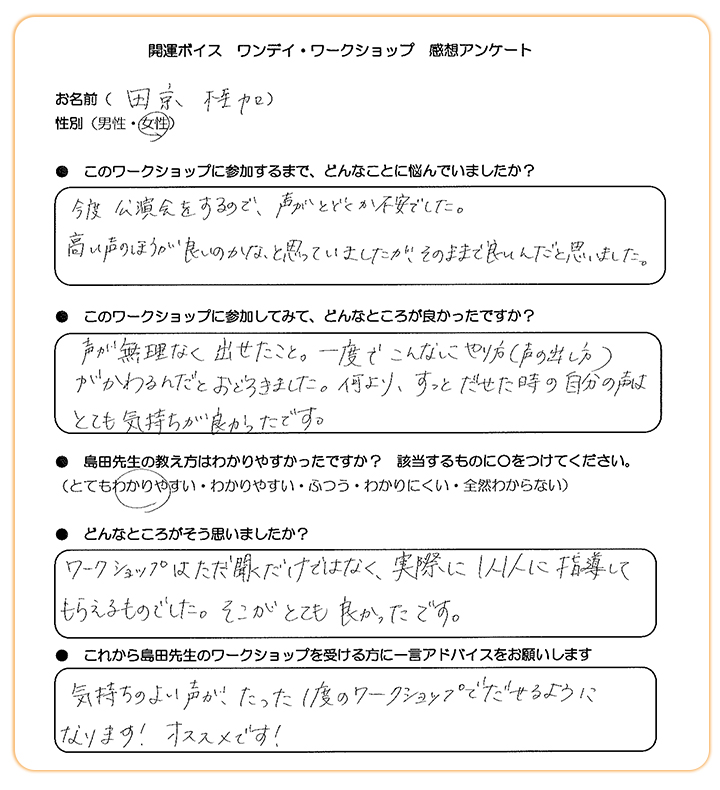 開運ボイス ワンデイ・ワークショップ 感想アンケート
お名前（ 田京 桂加）
性別（男性・女性）
● このワークショップに参加するまで、どんなことに悩んでいましたか？
今度 公演会をするので、声がとどくか不安でした。
高い声のほうが良いのかな、と思っていましたが、そのままで良いんだと思いました。
● このワークショップに参加してみて、どんなところが良かったですか？
声が無理なく出せたこと。一度でこんなにやり方（声の出し方）
がかわるんだとおどろきました。何より、すっとだせた時の自分の声は
とても気持ちが良かったです。
● 島田先生の教え方はわかりやすかったですか？ 該当するものに〇をつけてください。
（とてもわかりやすい・わかりやすい・ふつう・わかりにくい・全然わからない）
● どんなところがそう思いましたか？
ワークショップはただ聞くだけではなく、実際に1人1人に指導して
もらえるものでした。そこがとても良かったです。
● これから島田先生のワークショップを受ける方に一言アドバイスをお願いします
気持ちのよい声が、たった1度のワークショップでだせるように
なります！ オススメです！